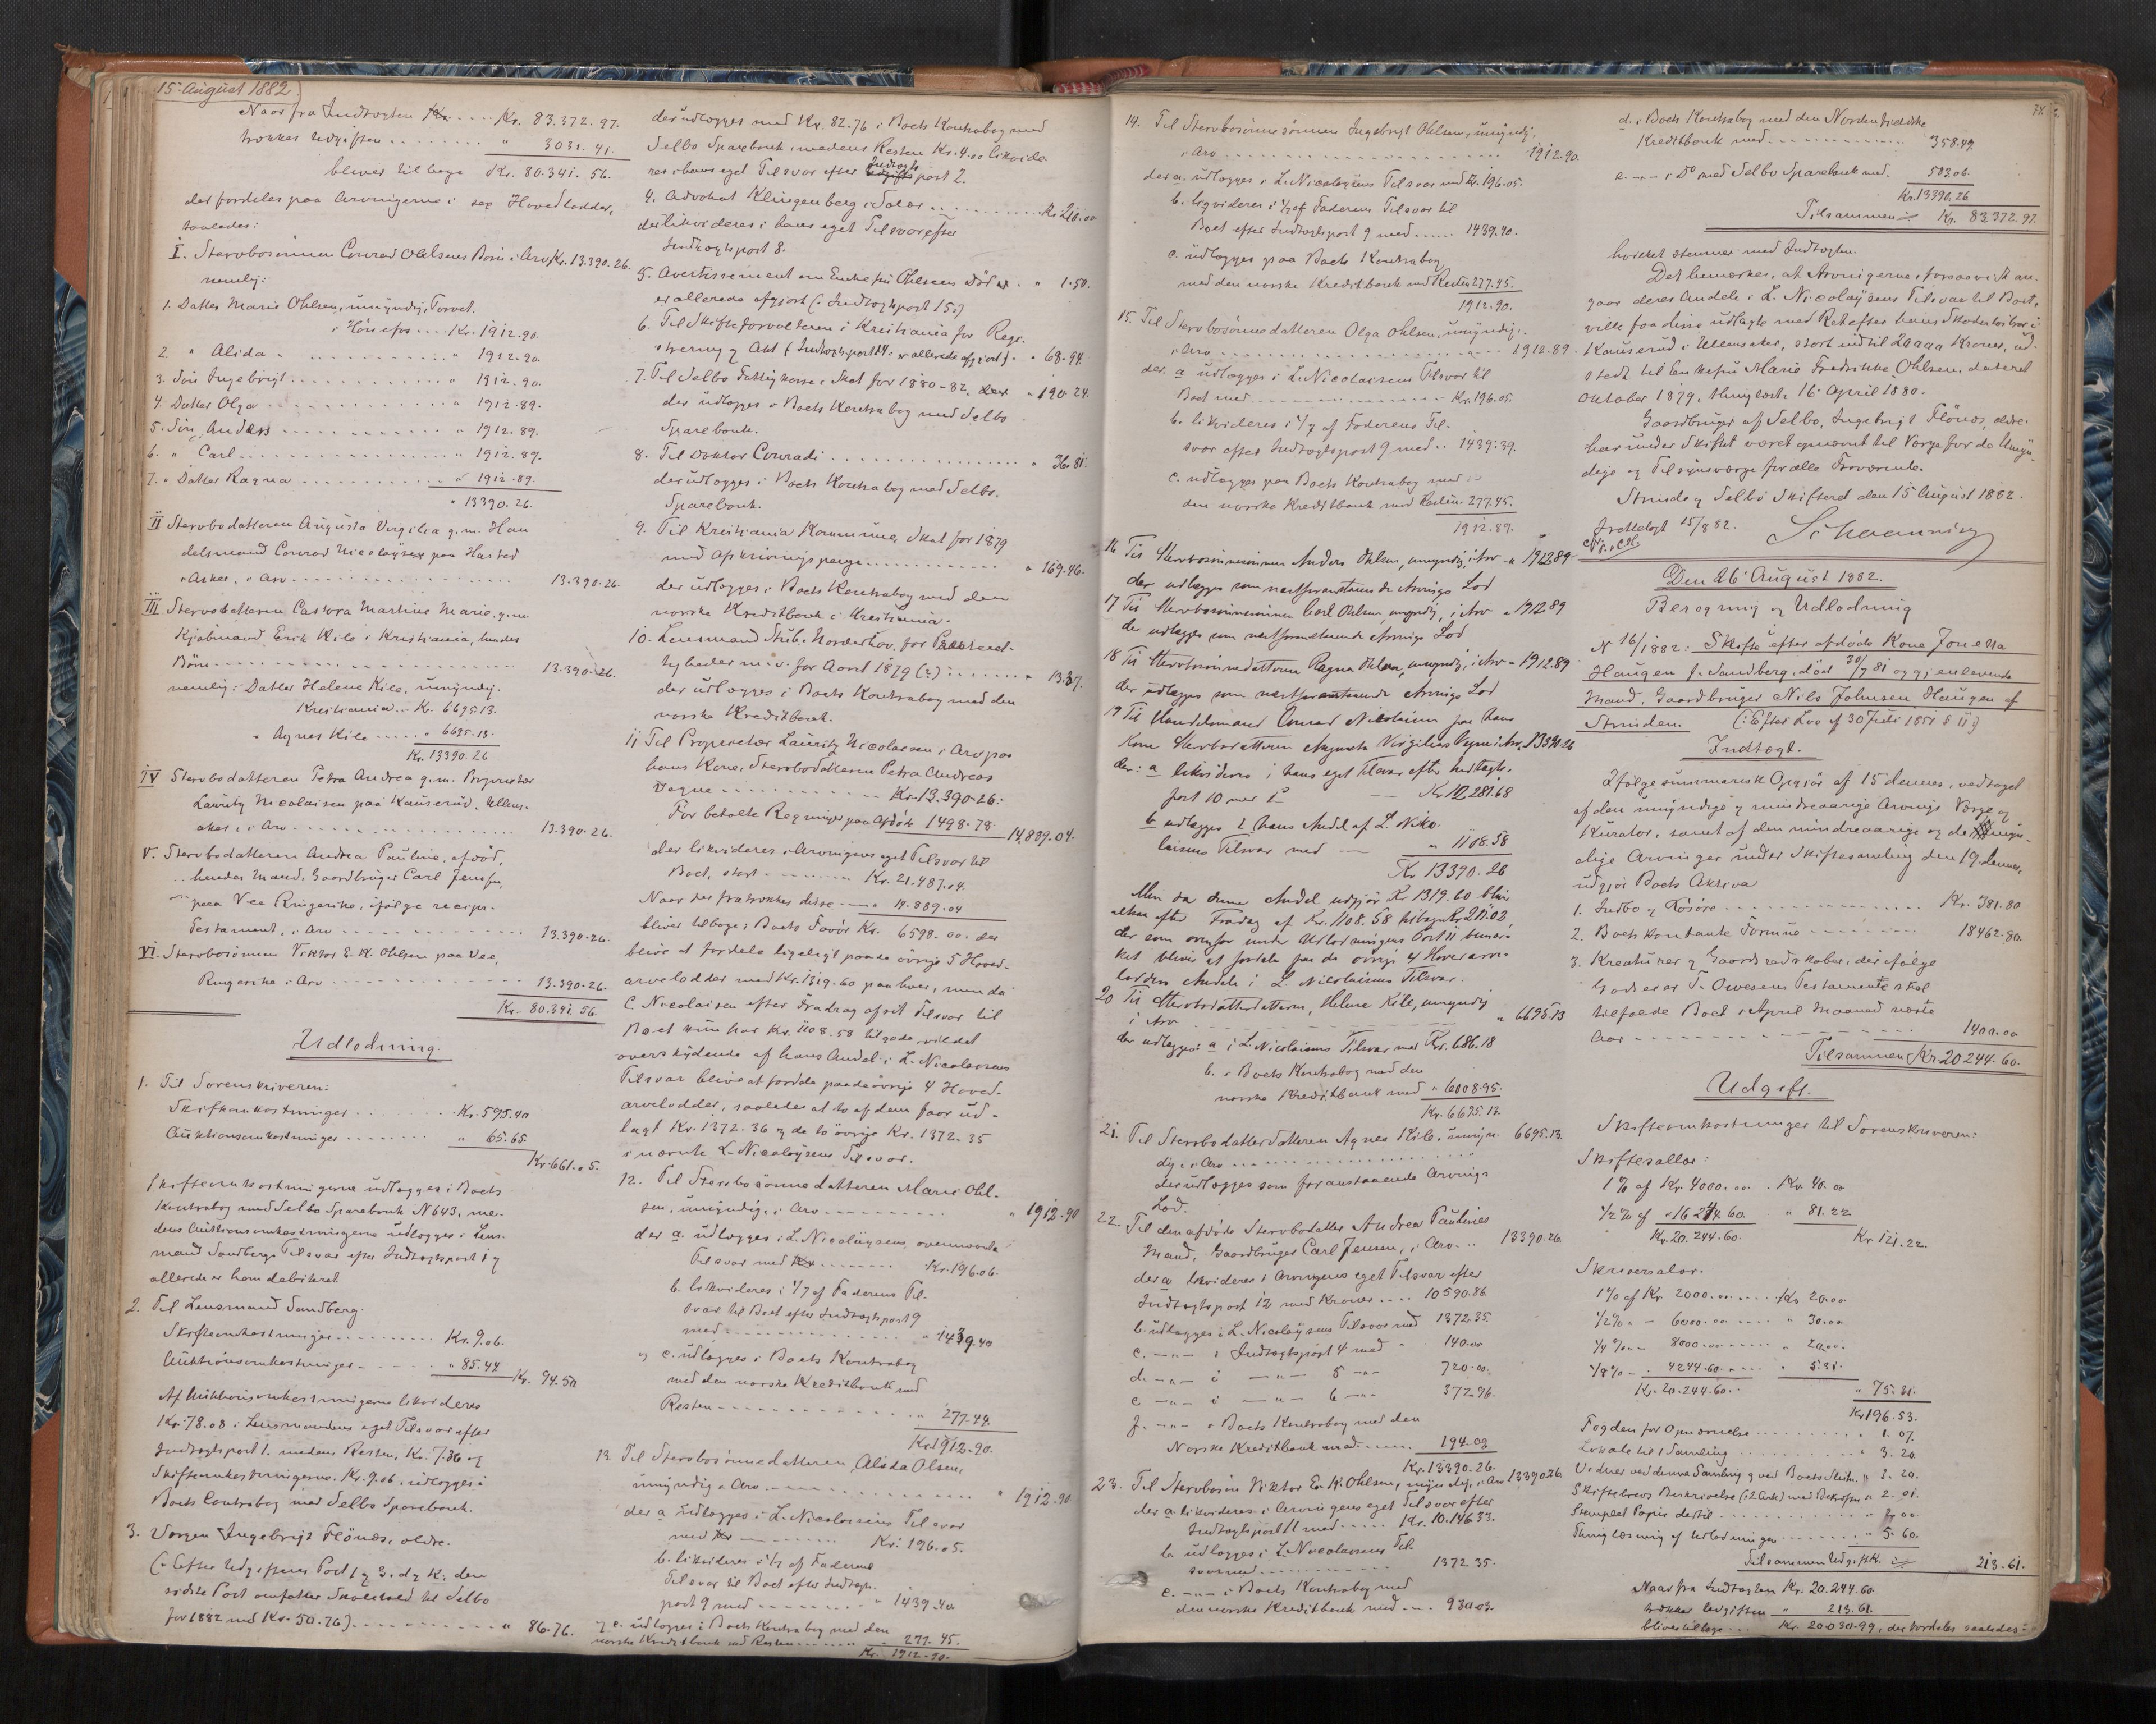 15 August 1882.
Naar fra Indtægten Kr. 83.372.97.
trækkes Udgiften " 3031.41.
bliver tilbage Kr. 80.341.56.
der fordeles paa Arvingerne i sex Hovedlodder,
saaledes:
I. Stervbosönnen Conrad Ohlsens Börn i Arv Kr. 13.390.26.
nemlig:
1. Datter Marie Ohlsen, umyndig, Torvet
i Hönefos Kr. 1912.90.
2. " Alida " 1912.90.
3. Sön Ingebrigt " 1912.90.
4. Datter Olga " 1912.89.
5. Sön Anders " 1912.89.
6. " Carl " 1912.89.
7. " Datter Ragna " 1912.89.
" 13390.26.
II Stervbodatteren Augusta Virgilia g.m. Han
delsmand Conrad Nicolaÿsen paa Harstad
i Asker, i Arv 13.390.26.
III Stervbodatteren Castora Martine Marie, g.m.
Kjöbmand Erik Kile i Kristiania, hendes
Börn 13.390.26.
nemlig: Datter Helene Kile, umyndig.
Kristiania Kr. 6695.13.
" Agnes Kile " 6695.13.
Kr. 13390.26
IV Stervbodatteren Petra Andrea g.m. Proprietær
Lauritz Nicolaisen paa Kauserud, Ullens-
aker, i Arv 13.390.26.
V. Stervbodatteren Andrea Pauline, afdöd,
hendes Mand, Gaardbruger Carl Jensen,
paa Vee Ringerike, ifölge recipr.
Testament, i Arv 13.390.26.
VI. Stervbosönnen Viktor E. K. Ohlsen paa Vee,
Ringerike i Arv 13.390.26.
Kr. 80.341.56.
Udlodning.
1. Til Sorenskriveren:
Skifteomkostninger Kr. 595.40
Auktionsomkostninger " 65.65.
Kr. 661.05.
Skifteomkostningerne udlægges i Boets
Kontrabog med Selbo Sparebank N 643, me-
dens Auktionsomkostningerne udlægges i Lens-
mand Sandbergs Tilsvar efter Indtægtspost 1 og
allerede er ham debiteret
2. Til Lensmand Sandberg.
Skifteomkostninger Kr. 9.06.
Auktionsomkostninger " 85.44
Kr. 94.50
Af Auktionsomkostningerne likvideres
Kr. 78.08 i Lensmandens eget Tilsvar efter
Indtægtspost 1. medens Resten, Kr. 7.36 og
Skifteomkostningerne, Kr. 9.06, udlægges i
Boets Contrabog med Selbo Sparebank.
3. Vergen Ingebrigt Flönæs, ældre.
(: Efter Udgiftens Post 1 og 3. d og k; den
sidste Post omfatter Skoleskat til Selbo
for 1882 med Kr. 50.26) " 86.76.
der udlægges med Kr. 82.76 i Boets Kontrabog med
Selbo Sparebank, medens Resten Kr. 4.00 likvide-
res i hans eget Tilsvar efter Indtægts post 2.
4. Advokat Klingenberg i Salær Kr. 210.00
der likvideres i hans eget Tilsvar efter
Indtægtspost 8.
5. Avertissement om Enkefru Ohlsens Död " 1.50.
er allerede afgjort (: Indtægtspost 15:)
6. Til Skifteforvalteren i Kristiania for Regi-
strering og Akt (Indtægtspost 14: er allerede afgjort) " 68.94.
7. Til Selbo Fattigkasse i Skat for 1880-82, " 190.24.
der udlægges i Boets Kontrabog med Selbo
Sparebank.
8. Til Doktor Conradi " 36.81.
der udlægges i Boets Kontrabog med Selbo
Sparebank.
9. Til Kristiania Kommune, Skat for 1879
med Afskrivningspenge " 169.46.
der udlægges i Boets Kontrabog med den
norske Kreditbank i Kristiania.
10. Lensmand Stub, Norderhov, for Prestered-
tigheder m.v. for Aaret 1879 (?) " 13.37.
der udlægges i Boets Kontrabog med den
norske Kreditbank.
11 Til Proprietær Lauritz Nicolaisen i Arv paa
hans Kone, Stervbodatteren Petra Andreas
Vegne Kr. 13.390.26.
For betalte Regninger paa Afdöde 1498.78
14.889.04.
der likvideres i Arvingens eget Tilsvar til
Boet, stort Kr. 21.487.04.
Naar der fratrækkes disse " 14.889.04
bliver tilbage i Boets Favör Kr. 6598.00. der
bliver at fordele ligeligt paa de övrige 5 Hoved-
arvelodder med Kr. 1319.60 paa hver, men da
C. Nicolaisen efter Fradrag af sit Tilsvar til
Boet kun har Kr. 1108.58 tilgode, vil det
overskydende af hans Andel i L. Nicolaisens
Tilsvar blive at fordele paa de övrige 4 Hoved-
arvelodder, saaledes at to af dem faar ud-
lagt Kr. 1372.36 og de to övrige Kr. 1372.35
i nævnte L. Nicolaÿsens Tilsvar.
12. Til Stervbosönnedatteren Marie Ohl-
sen, umyndig, i Arv " 1912.90
der a. udlægges i L. Nicolaÿsens ovennævnte
Tilsvar med Kr. 196.06.
b. likvideres i 1/7 af Faderens Til-
svar til Boet efter Indtægtspost 9
med " 1439.40
og c. udlægges i Boets Kontrabog
med den norske Kreditbank med
Resten " 277.44.
Kr. 1912.90.
13. Til Stervbosönnedatteren Alida Olsen,
umyndig i Arv " 1912.90
der a udlægges i L. Nicolaisens Tilsvar
med Kr. 196.05.
b. likvideres i 1/7 af Faderens
Tilsvar til Boet efter Indtægts-
post 9 med " 1439.40
og c. udlægges i Boets Kontrabog med den
norske Kreditbank med Resten " 277.45.
Kr. 1912.90.
14. Til Stervbosönnesönnen Ingebrigt Ohlsen, umyndig,
i Arv 1912.90.
der a. udlægges i L. Nicolaÿsens Tilsvar med Kr. 196.05.
b. likvideres i 1/7 af Faderens Tilsvar til
Boet efter Indtægtspost 9 med 1439.40.
c. udlægges paa Boets Kontrabog
med den norske Kreditbank med Resten 277.45.
1912.90.
15. Til Stervbosönnedatteren Olga Ohlsen, umyndig,
i Arv 1912.89.
der a udlægges i L. Nicolaisens Tilsvar til
Boet med Kr. 196.05.
b. likvideres i 1/7 af Faderens Til-
svar efter Indtægtspost 9 med 1439.39.
c. udlægges paa Boets Kontrabog med
den norske Kreditbank med Resten 277.45.
1912.89.
16 Til Stervbosönnesönnen Anders Ohlsen, umyndig, i Arv " 1912.89
der udlægges som næstforanstaaende Arvings Lod
17 Til Stervbosönnesönnen Carl Ohlsen, umyndig, i Arv " 1912.89
der udlægges som næstforanstaaende Arvings Lod
18 Til Stervbosönnedatteren Ragna Ohlsen, umyndig, i Arv " 1912.89
der udlægges som næstforanstaaende Arvings Lod
19 Til Handelsmand Conrad Nicolaisen paa hans
Kone Stervbodatteren Augusta Virgilias Vegne i Arv 13390.26
der: a likvideres i hans eget Tilsvar efter Indtægts-
post 10 med Kr. 12281.68
b udlægges i hans Andel af L. Niko-
laisens Tilsvar med " 1108.58
Kr 13390.26
Men da denne Andel udgjör Kr 1319.60 bliver
altsaa efter Fradrag af Kr. 1108.58 tilbage Kr 211.02
der som ovenfor under Udlodningens Post 11 bemær-
ket bliver at fordele paa de övrige 4 Hovedarve-
lodders Andele i L. Nicolaisens Tilsvar.
20 Til Stervbodatterdatteren, Helene Kile, umyndig
i Arv " 6695.13
der udlægges: a i L. Nicolaisens Tilsvar med Kr. 686.18
b. i Boets Kontrabog med den
norske Kreditbank med " 6008.95.
Kr. 6695.13.
21. Til Stervbodatterdatteren Agnes Kile, umyn- 6695.13.
dig i Arv
der udlægges som foranstaaende Arvings
Lod.
22. Til den afdöde Stervbodatter Andrea Paulines
Mand, Gaardbruger Carl Jensen, i Arv 13390.26.
der a likvideres i Arvingens eget Tilsvar efter
Indtægtspost 12 med Kroner 10590.86
b. udlægges i L. Nicolaÿsens Tilsvar med 1372.35.
c. -"- i Indtægtspost 4 med " 140.00
d. -"- i -"- 5 -"- 720.00.
e -"- i -"- 6 -"- 372.96.
f. -"- i Boets Kontrabog med den
Norske Kreditbank med 194.09
Kr. 13390.26.
23. Til Stervbosön Viktor E. K. Ohlsen, myndig, i Arv 13390.26
der a likvideres i Arvingens eget Tilsvar efter
Indtægtspost 11 med Kr. 10.146.33.
b udlægges i L. Nicolaisens Til-
svar med 1372.35.
c. -"- i Boets Kontrabog med
den norske Kreditbank med 930.03.
d. i Boets Kontrabog med den Nordenfjeldske
Kreditbank med 358.49.
e. -"- i Do med Selbo Sparebank med 583.06.
Kr. 13390.26
Tilsammen Kr. 83.372.97
hvilket stemmer med Indtægten.
Det bemærkes, at Arvingerne, forsaavidt an-
gaar deres Andele i L. Nicolaÿsens Tilsvar til Boet,
ville faa disse udlagte med Ret efter hans
Kauserud i Ullensaker, stort indtil Kroner, ud-
stedt til Enkefru Marie Fredrikke Ohlsen, dateret
Oktober 1879, thinglæst 16 April 1880.
Gaardbruger af Selbo, Ingebrigt Flönæs, ældre
har under Skiftet været opnævnt til Verge for de Umyn-
dige og Tilsynsverge for alle Fraværende.
Strinde og Selbo Skifteret den 15 August 1882.
Schaanning
Den 26 August 1882.
Beregning og Udlodning
N 16/1882: Skifte efter afdöde Kone Jonetta
Haugen f. Sandberg, död 30/7 81 og gjenlevende
Mand, Gaardbruger Nils Johnsen Haugen af
Strinden. (: Efter Lov af 30 Juli 1851 § 11:)
Indtægt.
Ifölge summarisk Opgjör af 15 dennes, vedtaget
af den umyndige og mindreaarige Arvings Verge og
Kurator, samt af den mindreaarige og de myn-
dige Arvinger under Skiftesamling den 19 dennes,
udgjör Boets Aktiva
1. Indbo og Lösöre Kr. 381.80
2. Boets kontante Formue 18462.80.
3. Kreaturer og Gaardsredskaber, der ifölge
Godseier T. Owesens Testamente skal
tilfalde Boet i April Maaned næste
Aar 1400.00
Tilsammen Kr. 20244.60.
Udgift.
Skifteomkostninger til Sorenskriveren:
Skiftesallær:
1% af Kr. 4000.00 Kr. 40.00
1/2% af " 16244.60. " 81.22
Kr. 20.244.60. Kr 121.22.
Skriversalær.
1% af Kr. 2000.00 Kr 20.00
1/2% " - 6000.00 " 30.00
1/4% " - 8000.00 " 20.00
1/8% - " 4244.60. " 5.31.
Kr. 20.244.60. " 75.31.
Kr 196.53.
Fogden for Opnævnelse " 1.07.
Lokale til 1 Samling " 3.20
Vidner ved denne Samling og ved Boets Slutn. " 3.20.
Skiftebrevs Beskrivelse (: 2 Ark) med Bekræftn " 2.01.
Stemplet Papir dertil
Thinglæsning af Udlodningen " 5.60.
Tilsammen Udgift Kr. 213.61.
Naar fra Indtægten Kr. 20.244.60
trækkes Udgiften " 213.61.
bliver tilbage Kr. 20030.99, der fordeles saaledes: